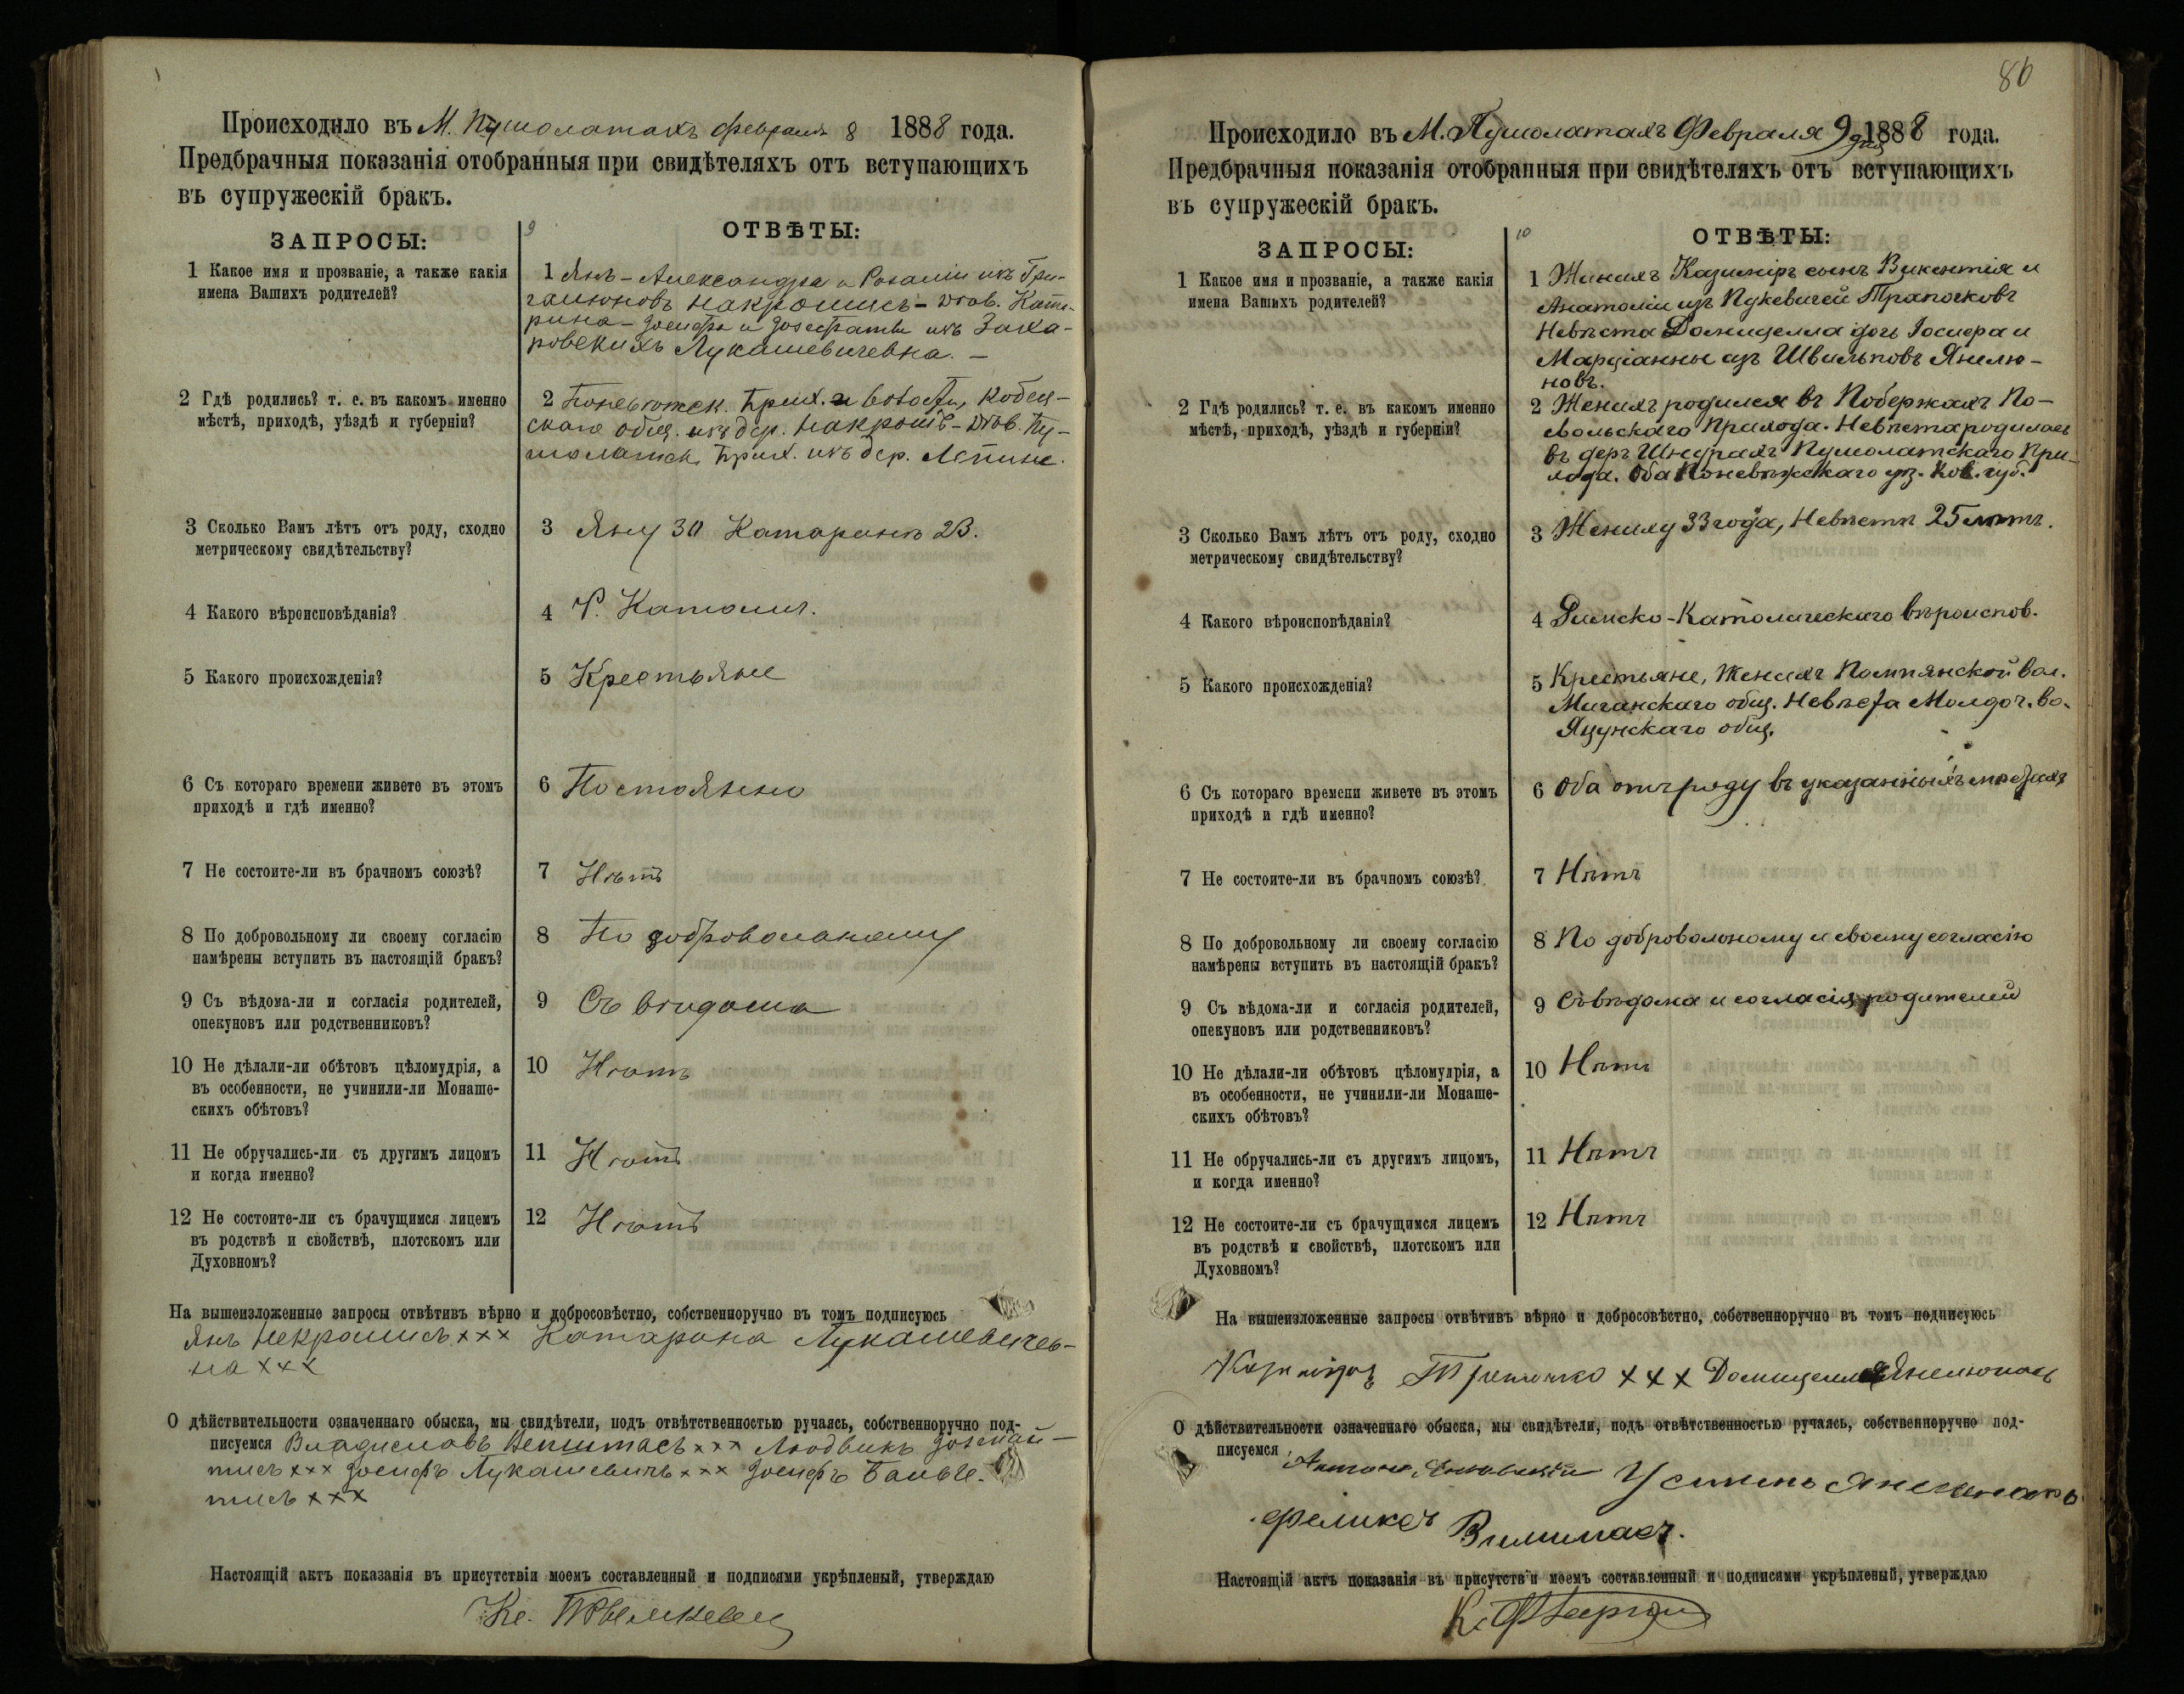 Происходило въ М. Пушолатахъ Февраля 8 1888 года.
Предбрачныя показанія отобранныя при свидѣтеляхъ отъ вступающихъ
въ супружескій бракъ.
ЗАПРОСЫ:
9
ОТВѢТЫ:
1 Какое имя и прозваніе, а также какія
имена Вашихъ родителей?
1 Янъ – Александра и Розаліи изъ
– Кате-
рина – Іосифа и изъ Заха-
ровскихъ Лукашевичевна. –
2 Гдѣ родились? т. е. въ какомъ именно
мѣстѣ, приходѣ, уѣздѣ и губерніи?
2 Прих. и волости,
скаго общ. изъ дер. – Пу-
шолатск. прих. изъ дер.
3 Сколько Вамъ лѣтъ отъ роду, сходно
метрическому свидѣтельству?
3 Яну 30 Катаринѣ 23.
4 Какого вѣроисповѣданія?
4 Р. Католич.
5 Какого происхожденія?
5 Крестьяне
6 Съ котораго времени живете въ этомъ
приходѣ и гдѣ именно?
6 Постоянно
7 Не состоите-ли въ брачномъ союзѣ?
7 Нѣтъ
8 По добровольному ли своему согласію
намѣрены вступить въ настоящій бракъ?
8 По добровольному
9 Съ вѣдома-ли и согласія родителей,
опекуновъ или родственниковъ?
9 Съ вѣдома
10 Не дѣлали-ли обѣтовъ цѣломудрія, а
въ особенности, не учинили-ли Монаше-
скихъ обѣтовъ?
10 Нѣтъ
11 Не обручались-ли съ другимъ лицомъ
и когда именно?
11 Нѣтъ
12 Не состоите-ли съ брачущимся лицемъ
въ родствѣ и свойствѣ, плотскомъ или
Духовномъ?
12 Нѣтъ
На вышеизложенные запросы отвѣтивъ вѣрно и добросовѣстно, собственноручно въ томъ подписуюсь
Янъ Некрошисъ ××× Катарина Лукашевичев-
на ×××
О дѣйствительности означеннаго обыска, мы свидѣтели, подъ отвѣтственностью ручаясь, собственноручно под-
писуемся Владиславъ ××× Людвикъ
××× Іосифъ Лукашевичъ ××× Іосифъ
×××
Настоящій актъ показанія въ присутствіи моемъ составленный и подписями укрѣпленый, утверждаю
Кс.
86
Происходило въ М. Пушолатахъ Февраля 9 дня 1888 года.
Предбрачныя показанія отобранныя при свидѣтеляхъ отъ вступающихъ
въ супружескій бракъ.
ЗАПРОСЫ:
10
ОТВѢТЫ:
1 Какое имя и прозваніе, а также какія
имена Вашихъ родителей?
1 Женихъ Казиміръ сынъ Викентія и
Анатоліи изъ Пукевичей Трапочковъ
Невѣста Домицелла дочь Іосифа и
Марціанны изъ Швильповъ Янелю-
новъ.
2 Гдѣ родились? т. е. въ какомъ именно
мѣстѣ, приходѣ, уѣздѣ и губерніи?
2 Женихъ родился въ Побержахъ По-
вольскаго Прихода. Невѣста родилась
въ дер. Пушолатскаго При-
хода. Оба Поневѣжскаго уѣз. Ков. губ.
3 Сколько Вамъ лѣтъ отъ роду, сходно
метрическому свидѣтельству?
3 Жениху 33 года, Невѣстѣ 25 лѣтъ.
4 Какого вѣроисповѣданія?
4 Римско-Католическаго вѣроиспов.
5 Какого происхожденія?
5 Крестьяне, Женихъ Помпянской вол.
общ. Невѣста во.
общ.
6 Съ котораго времени живете въ этомъ
приходѣ и гдѣ именно?
6 Оба отъ роду въ указанныхъ мѣстахъ
7 Не состоите-ли въ брачномъ союзѣ?
7 Нѣтъ
8 По добровольному ли своему согласію
намѣрены вступить въ настоящій бракъ?
8 По добровольному и своему согласію
9 Съ вѣдома-ли и согласія родителей,
опекуновъ или родственниковъ?
9 Съ вѣдома и согласія родителей
10 Не дѣлали-ли обѣтовъ цѣломудрія, а
въ особенности, не учинили-ли Монаше-
скихъ обѣтовъ?
10 Нѣтъ
11 Не обручались-ли съ другимъ лицомъ,
и когда именно?
11 Нѣтъ
12 Не состоите-ли съ брачущимся лицемъ
въ родствѣ и свойствѣ, плотскомъ или
Духовномъ?
12 Нѣтъ
На вышеизложенные запросы отвѣтивъ вѣрно и добросовѣстно, собственноручно въ томъ подписуюсь
Казиміръ Трапочко ××× Домицелля
О дѣйствительности означеннаго обыска, мы свидѣтели, подъ отвѣтственностью ручаясь, собственноручно под-
писуемся
Феликсъ
Настоящій актъ показанія въ присутствіи моемъ составленный и подписями укрѣпленый, утверждаю